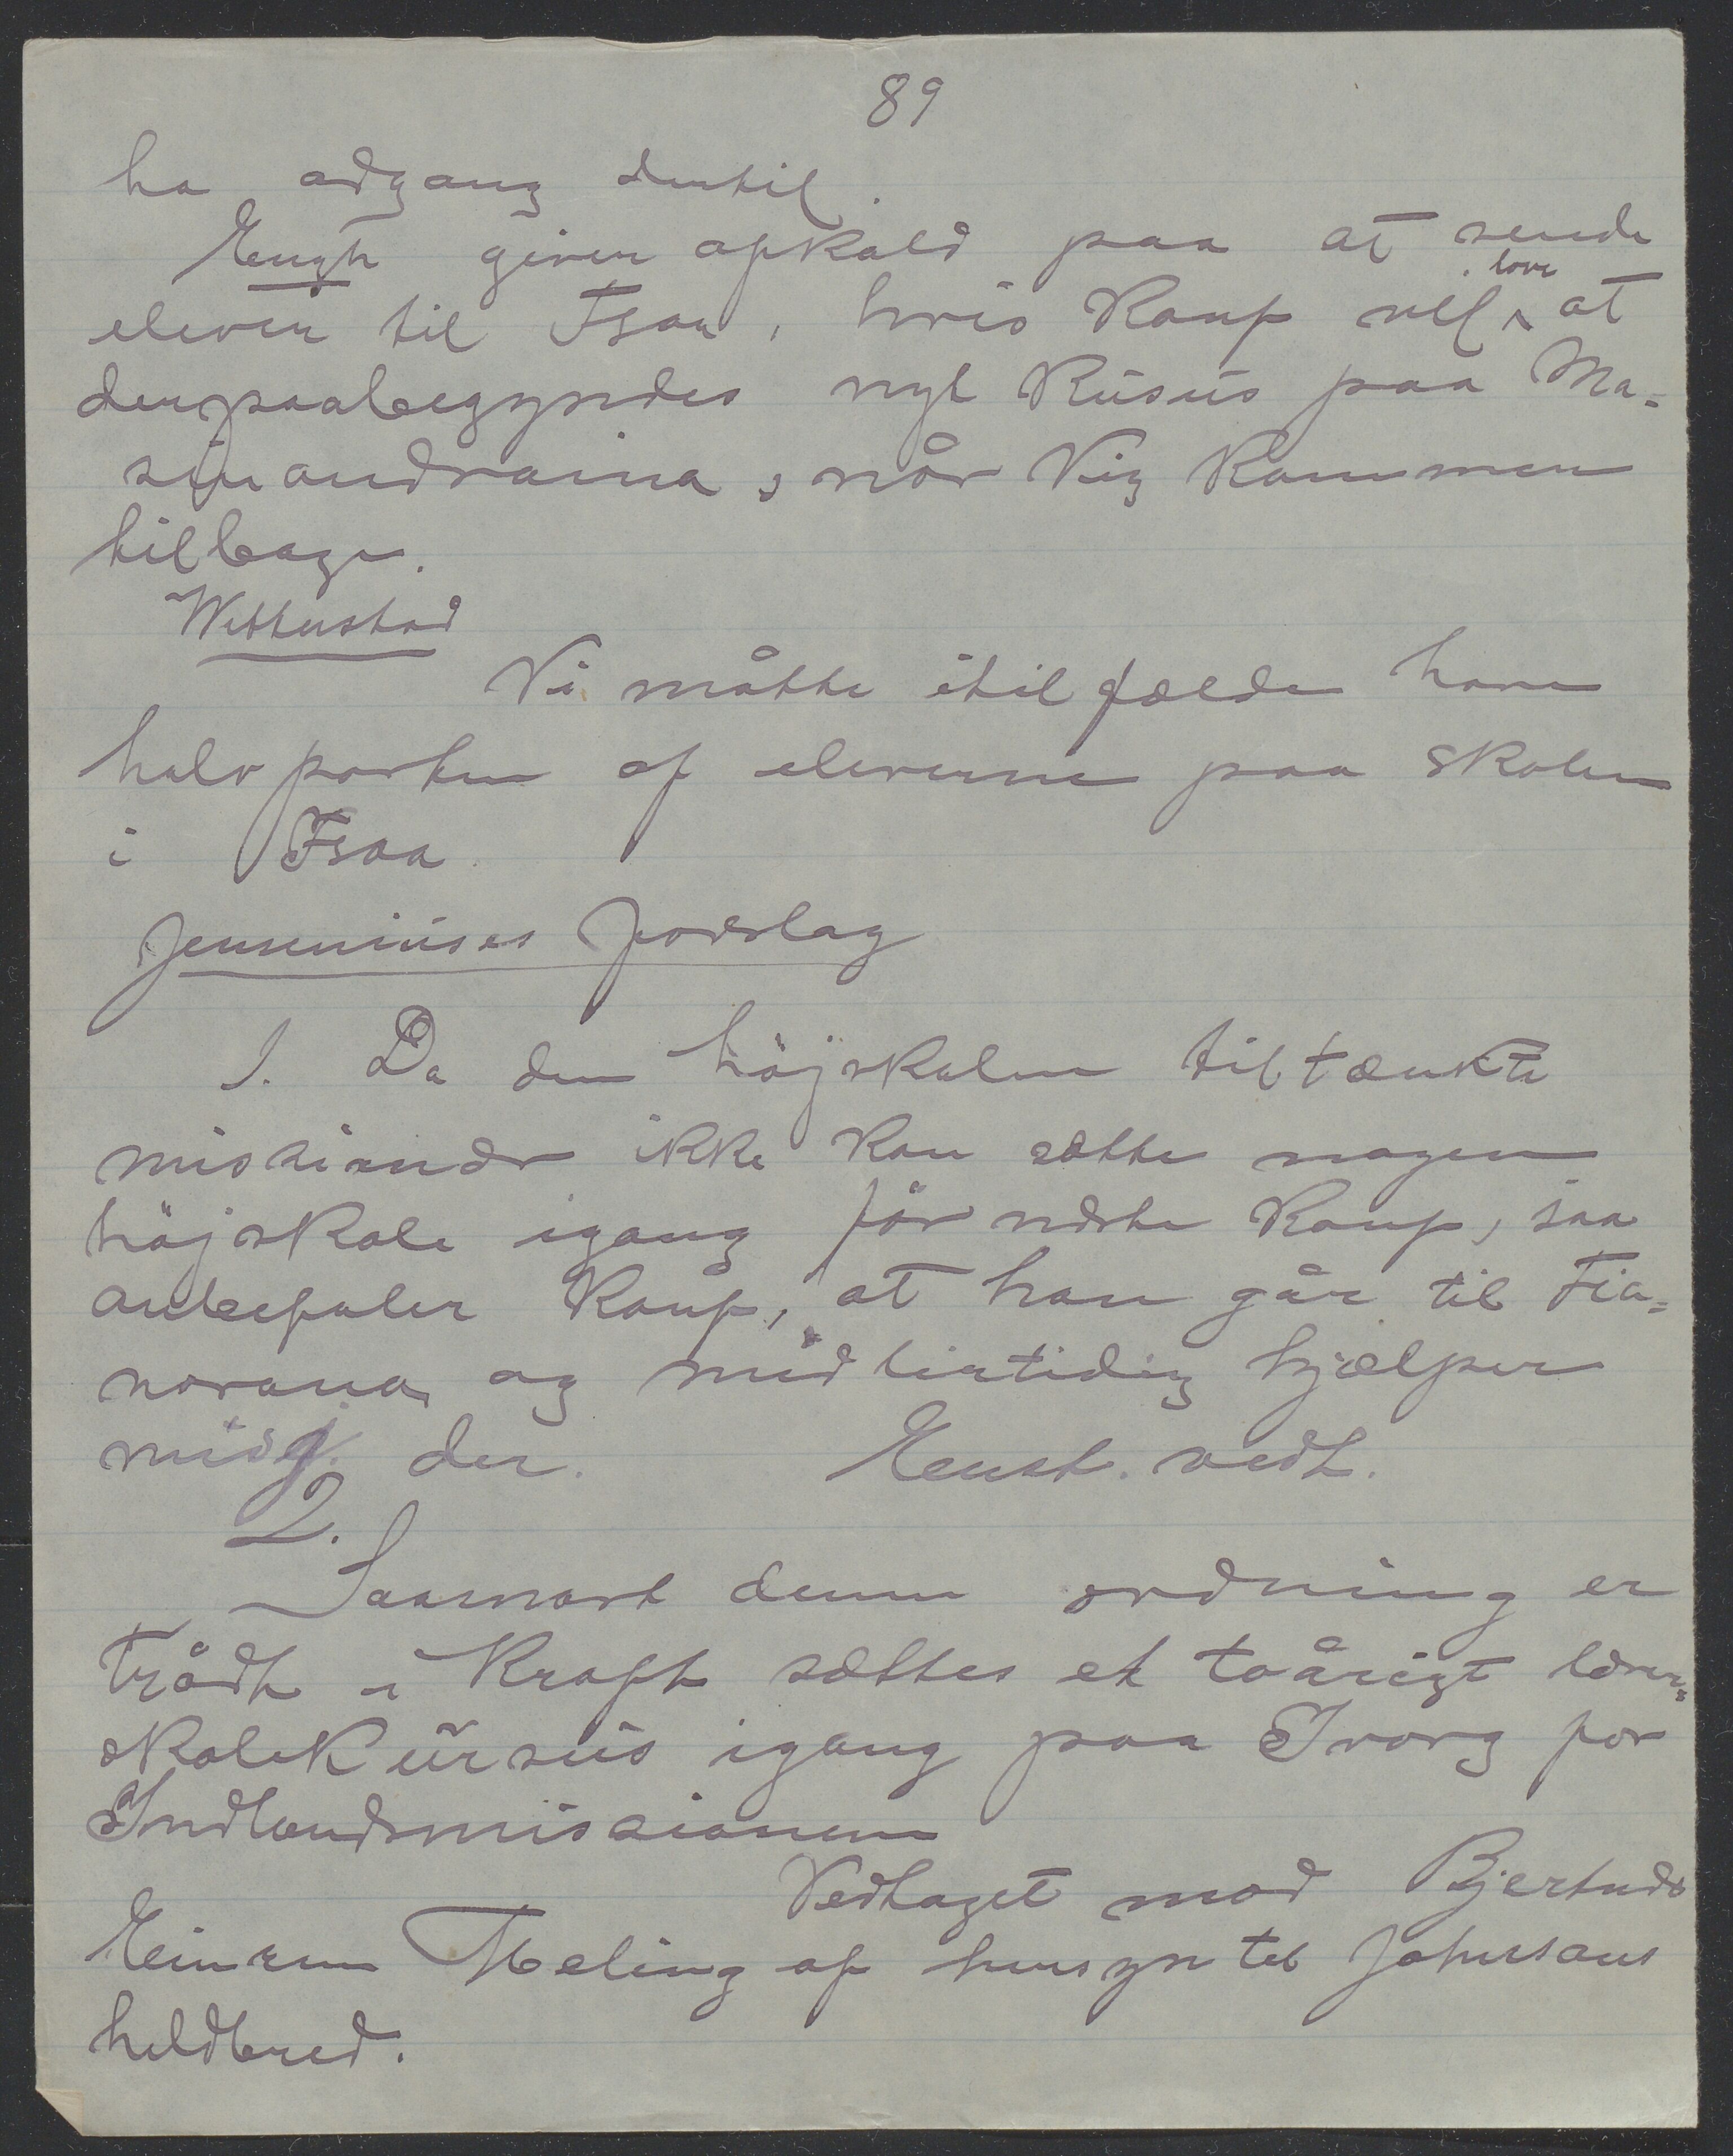 89
ha adgang dertil.
Engh giver afkald paa at sende
elever til Fsoa, hvis Konf vil love at
der paabegyndes nyt Kursus paa Ma-
sinandraina, når Vig kommer
tilbage.
Wetterstad
Vi måtte itilfælde have
halvparten af eleverne paa skolen
i Fsoa
Jenseniuses forslag
1. Da den höjskolen tiltænkte
missionær ikke kan sætte nogen
höjskole igang för næste Konf, saa
anbefaler Konf, at han går til Fia-
norana og midlertidig hjælper
miss. der. Enst. vedt.
2.
Saasnart denne ordning er
trådt i kraft sættes et toårigt lærer-
skolekursus igang paa Ivory for
Indlandsmissionen
Vedtaget mod Bjertnæs
Einrem Meling af hensyn til Johnsons
heldbred.